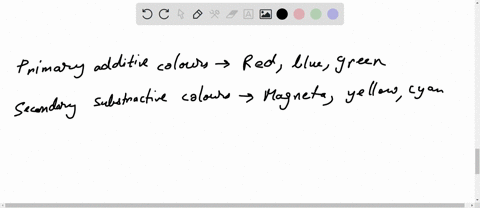 Primary additive colours → Red, blue, green
Secondary substractive colours → Magneta, yellow, cyan